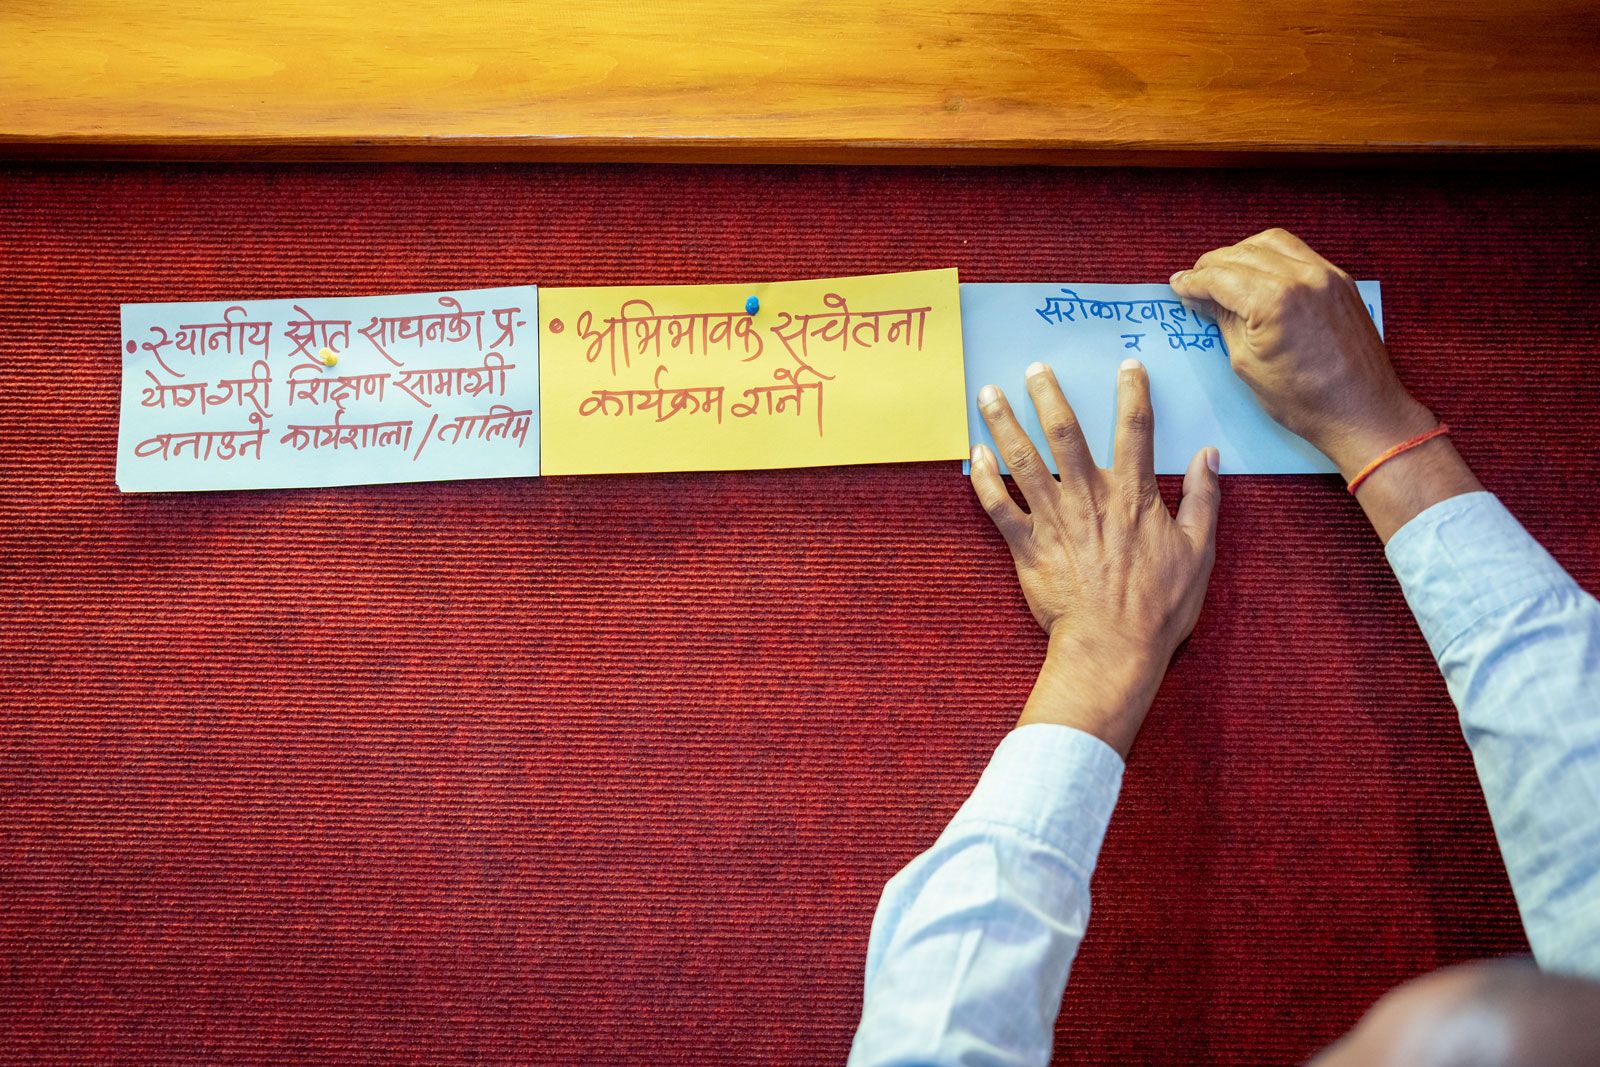 • स्थानीय स्रोत साधनको प्र-
योग गरी शिक्षण सामाग्री
बनाउने कार्यशाला / तालिम
• अभिभावक सचेतना
कार्यक्रम गर्ने।
सरोकारवाला
र